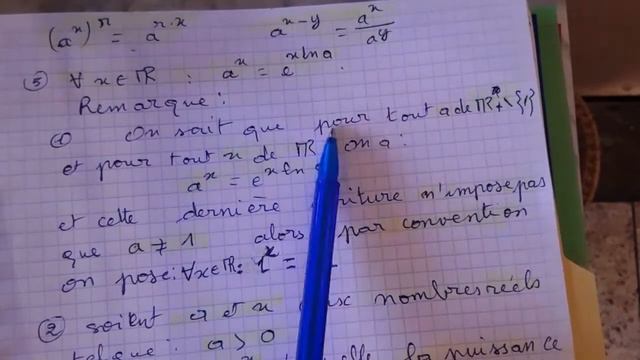 (aˣ)ʳ = aʳ·ˣ    aˣ⁻ʸ = aˣ/aʸ
⑤ ∀ x ∈ ℝ : aˣ = eˣˡⁿᵃ.
Remarque :
① On sait que pour tout a de ℝ*₊\{1}
et pour tout x de ℝ on a :
aˣ = eˣˡⁿ
et cette dernière n'impose pas
que a ≠ 1 alors par convention
on pose : ∀x∈ℝ : 1ˣ =
② soient a et x nombres réels
tel que : a > 0
la puissance